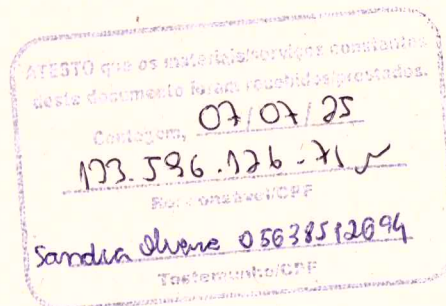 ATESTO que os materiais/serviços constantes
deste documento foram recebidos/prestados.
Contagem, 07/07/25
133.596.126-71
Responsável/CPF
Sandra 05638512694
Testemunha/CPF